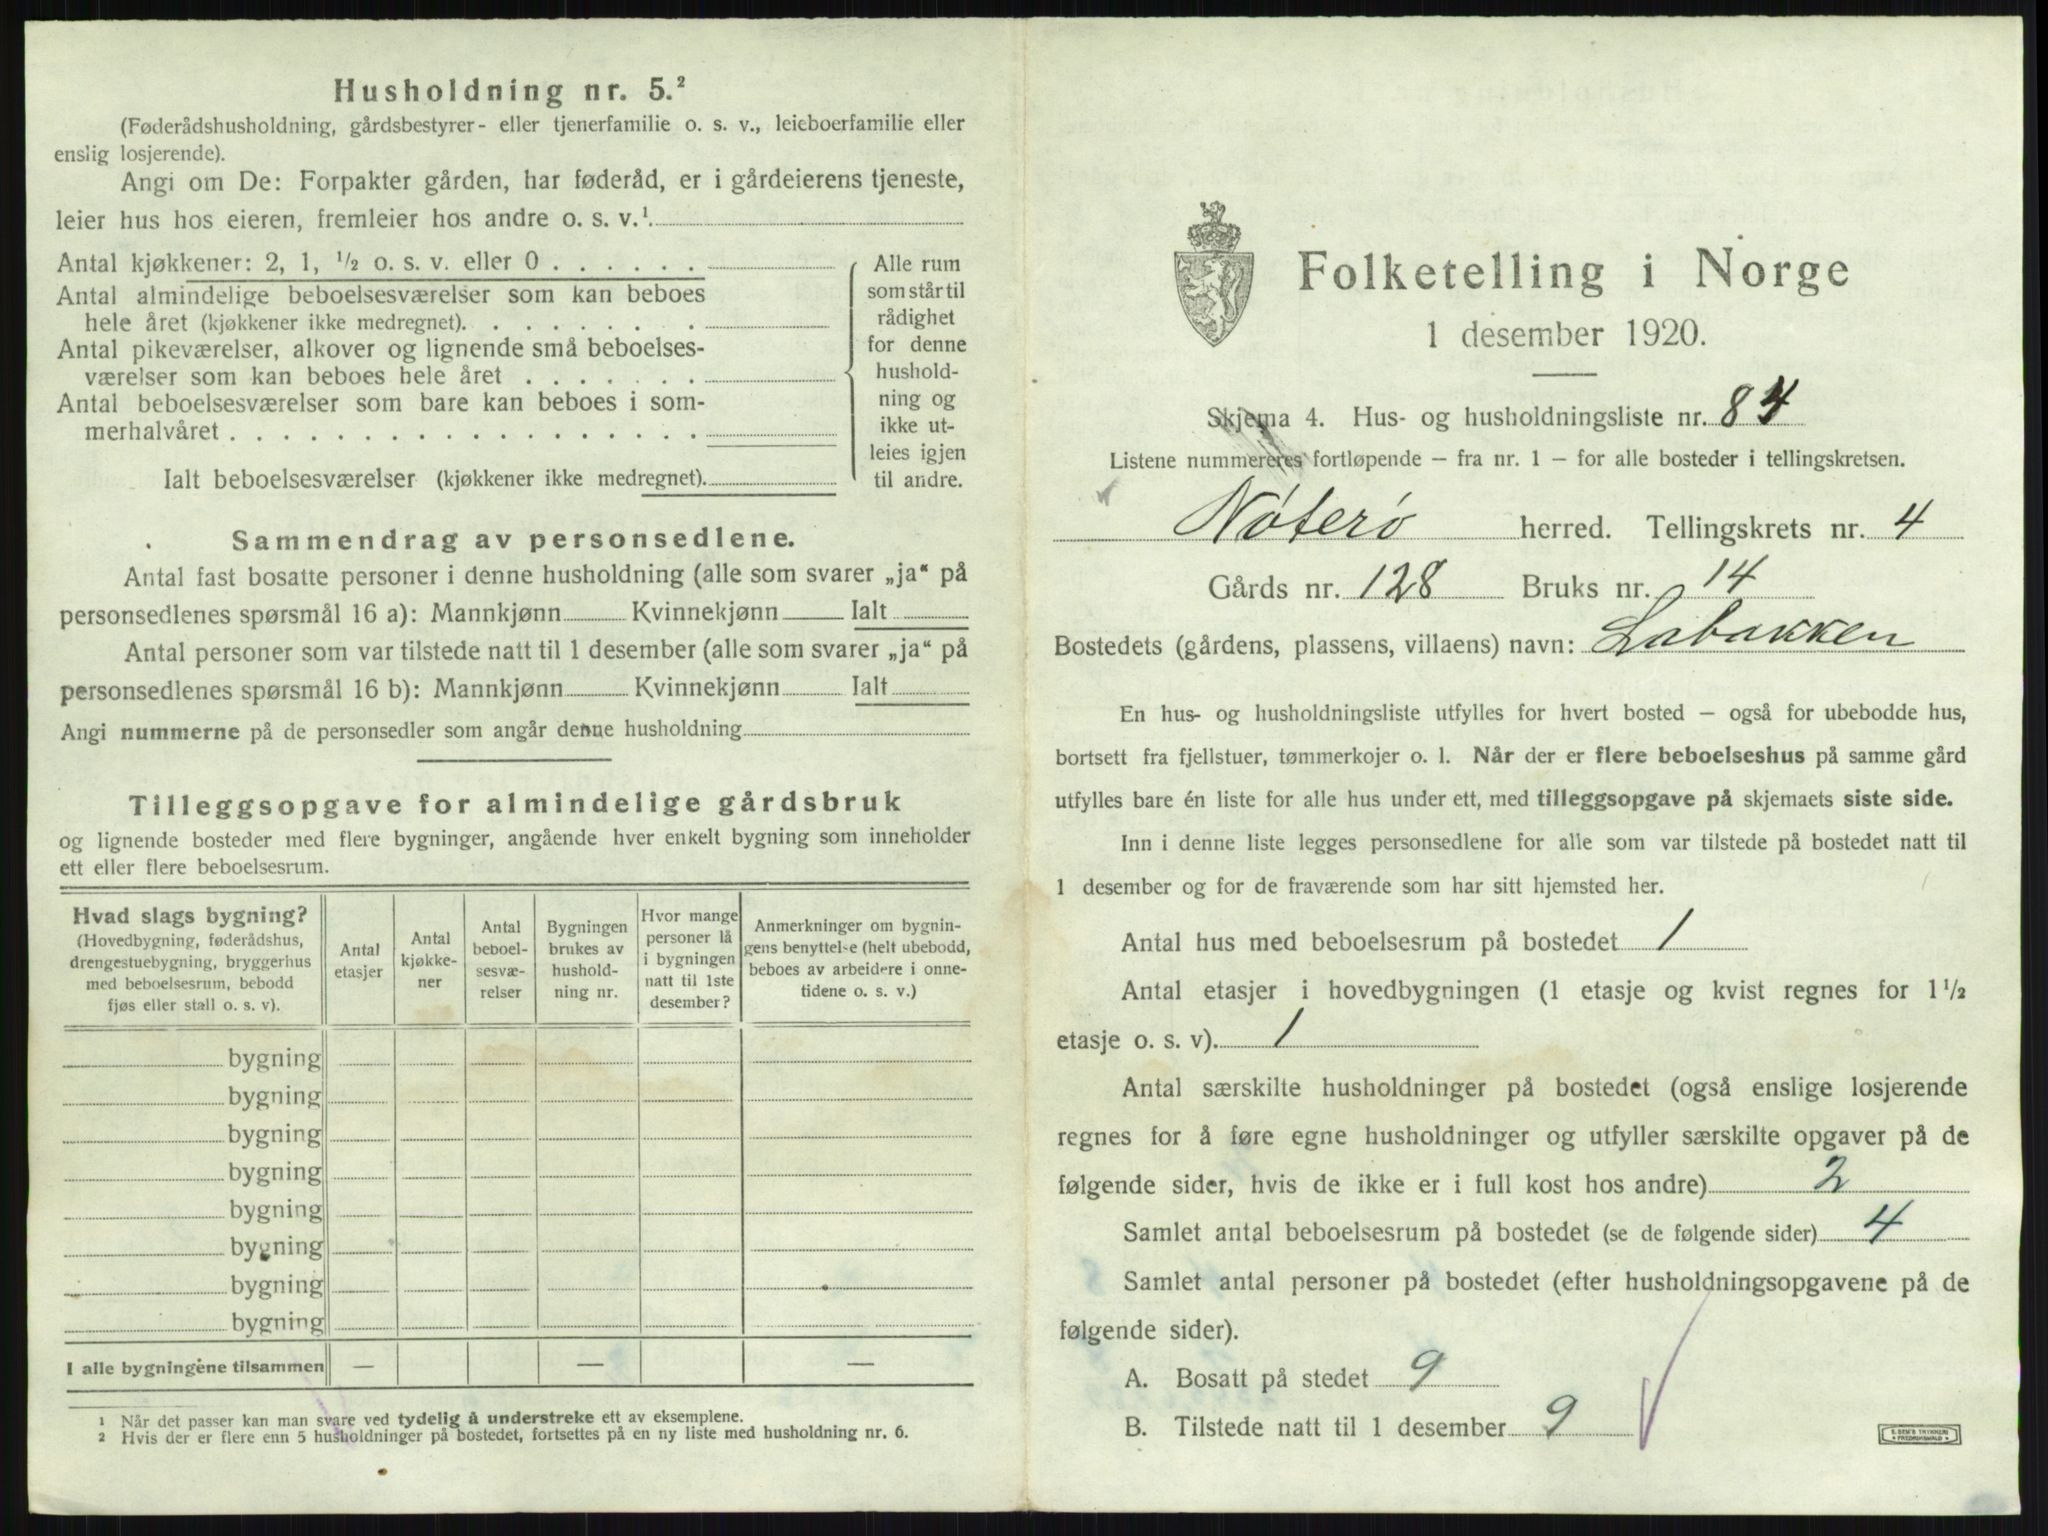 Husholdning nr. 5.²
(Føderådshusholdning, gårdsbestyrer- eller tjenerfamilie o. s. v., leieboerfamilie eller
enslig losjerende).
Angi om De: Forpakter gården, har føderåd, er i gårdeierens tjeneste,
leier hus hos eieren, fremleier hos andre o. s. v.¹
Antal kjøkkener: 2, 1, ½ o. s. v. eller 0 . . . . . .
Antal almindelige beboelsesværelser som kan beboes
hele året (kjøkkener ikke medregnet). . . . . . .
Antal pikeværelser, alkover og lignende små beboelses-
værelser som kan beboes hele året . . . . . . .
Antal beboelsesværelser som bare kan beboes i som-
merhalvåret . . . . . . . . . . . . . . . . . .
Ialt beboelsesværelser (kjøkkener ikke medregnet).
Alle rum
som står til
rådighet
for denne
hushold-
ning og
ikke ut-
leies igjen
til andre.
Sammendrag av personsedlene.
Antal fast bosatte personer i denne husholdning (alle som svarer „ja“ på
personsedlenes spørsmål 16 a): Mannkjønn Kvinnekjønn Ialt
Antal personer som var tilstede natt til 1 desember (alle som svarer „ja“ på
personsedlenes spørsmål 16 b): Mannkjønn Kvinnekjønn Ialt
Angi nummerne på de personsedler som angår denne husholdning
Tilleggsopgave for almindelige gårdsbruk
og lignende bosteder med flere bygninger, angående hver enkelt bygning som inneholder
ett eller flere beboelsesrum.
Hvad slags bygning?
(Hovedbygning, føderådshus,
drengestuebygning, bryggerhus
med beboelsesrum, bebodd
fjøs eller stall o. s. v).
Antal
etasjer
Antal
kjøkke-
ner
Antal
beboel-
sesvæ-
relser
Bygningen
brukes av
hushold-
ning nr.
Hvor mange
personer lå
i bygningen
natt til 1ste
desember?
Anmerkninger om bygnin-
gens benyttelse (helt ubebodd,
beboes av arbeidere i onne-
tidene o. s. v.)
bygning
bygning
bygning
bygning
bygning
bygning
bygning
bygning
I alle bygningene tilsammen — — —
¹ Når det passer kan man svare ved tydelig å understreke ett av eksemplene.
² Hvis der er flere enn 5 husholdninger på bostedet, fortsettes på en ny liste med husholdning nr. 6.
Folketelling i Norge
1 desember 1920.
Skjema 4. Hus- og husholdningsliste nr. 84
Listene nummereres fortløpende – fra nr. 1 – for alle bosteder i tellingskretsen.
Nøterø herred. Tellingskrets nr. 4
Gårds nr. 128 Bruks nr. 14
Bostedets (gårdens, plassens, villaens) navn: Labakken
En hus- og husholdningsliste utfylles for hvert bosted – også for ubebodde hus,
bortsett fra fjellstuer, tømmerkojer o. l. Når der er flere beboelseshus på samme gård
utfylles bare én liste for alle hus under ett, med tilleggsopgave på skjemaets siste side.
Inn i denne liste legges personsedlene for alle som var tilstede på bostedet natt til
1 desember og for de fraværende som har sitt hjemsted her.
Antal hus med beboelsesrum på bostedet 1
Antal etasjer i hovedbygningen (1 etasje og kvist regnes for 1 ½
etasje o. s. v). 1
Antal særskilte husholdninger på bostedet (også enslige losjerende
regnes for å føre egne husholdninger og utfyller særskilte opgaver på de
følgende sider, hvis de ikke er i full kost hos andre) 2
Samlet antal beboelsesrum på bostedet (se de følgende sider) 4
Samlet antal personer på bostedet (efter husholdningsopgavene på de
følgende sider).
A. Bosatt på stedet 9
B. Tilstede natt til 1 desember 9